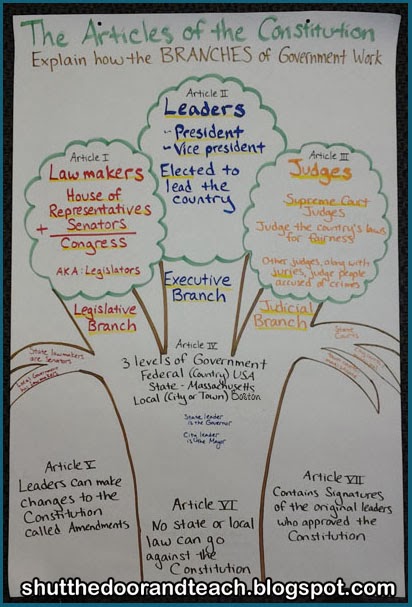 The Articles of the Constitution
Explain how the BRANCHES of Government Work
Article II
Leaders
- President
- Vice president
Elected to
lead the
country
Article I
Lawmakers
House of
Representatives
+ Senators
Congress
AKA: Legislators
Article III
Judges
Supreme Court
Judges
Judge the country's laws
for fairness!
Other judges, along with
juries, judge people
accused of crimes
Legislative
Branch
Executive
Branch
Judicial
Branch
State lawmakers
are Senators
Local Government
State
Courts
Article IV
3 levels of Government
Federal (Country) USA
State - Massachusetts
Local (City or Town) Boston
State leader
is the Governor
City leader
is the Mayor
Article V
Leaders can make
changes to the
Constitution
called Amendments
Article VI
No state or local
law can go
against the
Constitution
Article VII
Contains Signatures
of the original leaders
who approved the
Constitution
shutthedoorandteach.blogspot.com